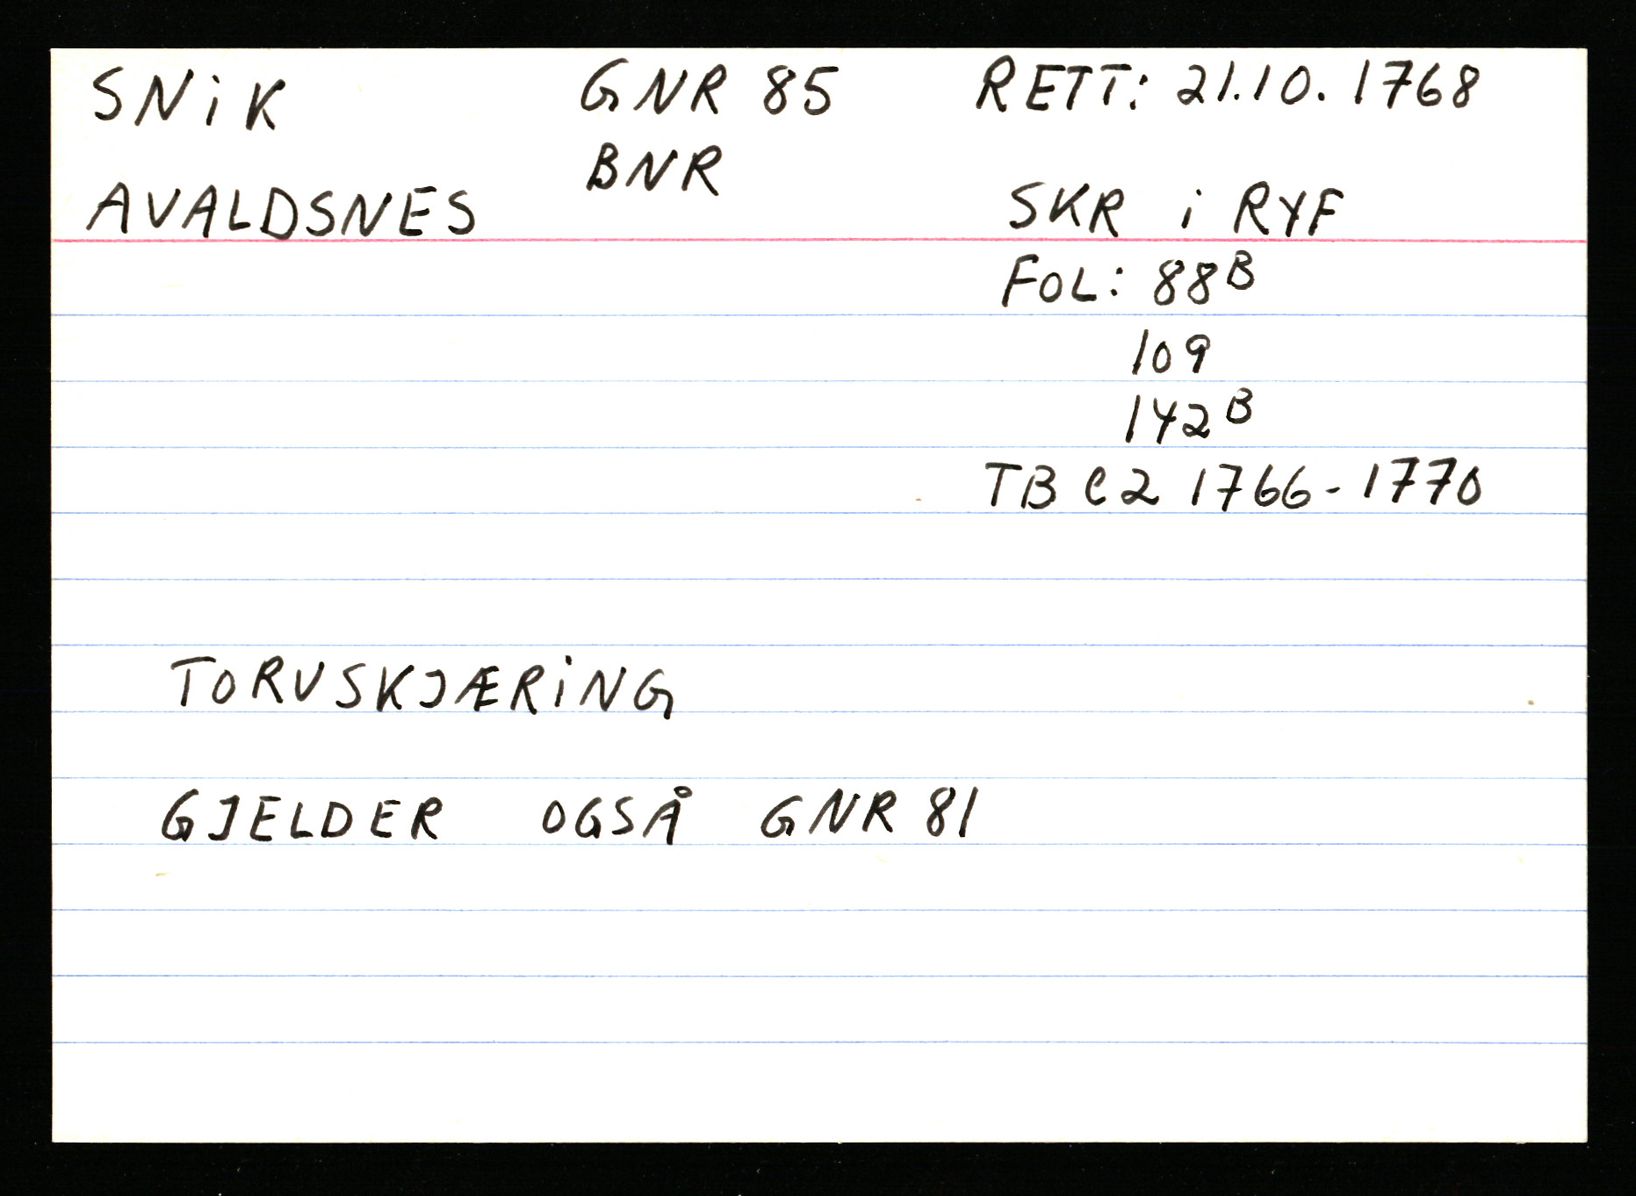 SNiK GNR 85 RETT: 21.10.1768
BNR
AVALDSNES SKR i RYF
FOL: 88B
109
142B
TB C2 1766-1770
TORVSKJÆRiNG
GJELDER OGSÅ GNR 81